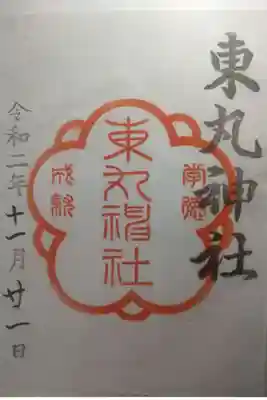 東丸神社
学徳
東丸神社
成就
令和二年十一月廿一日